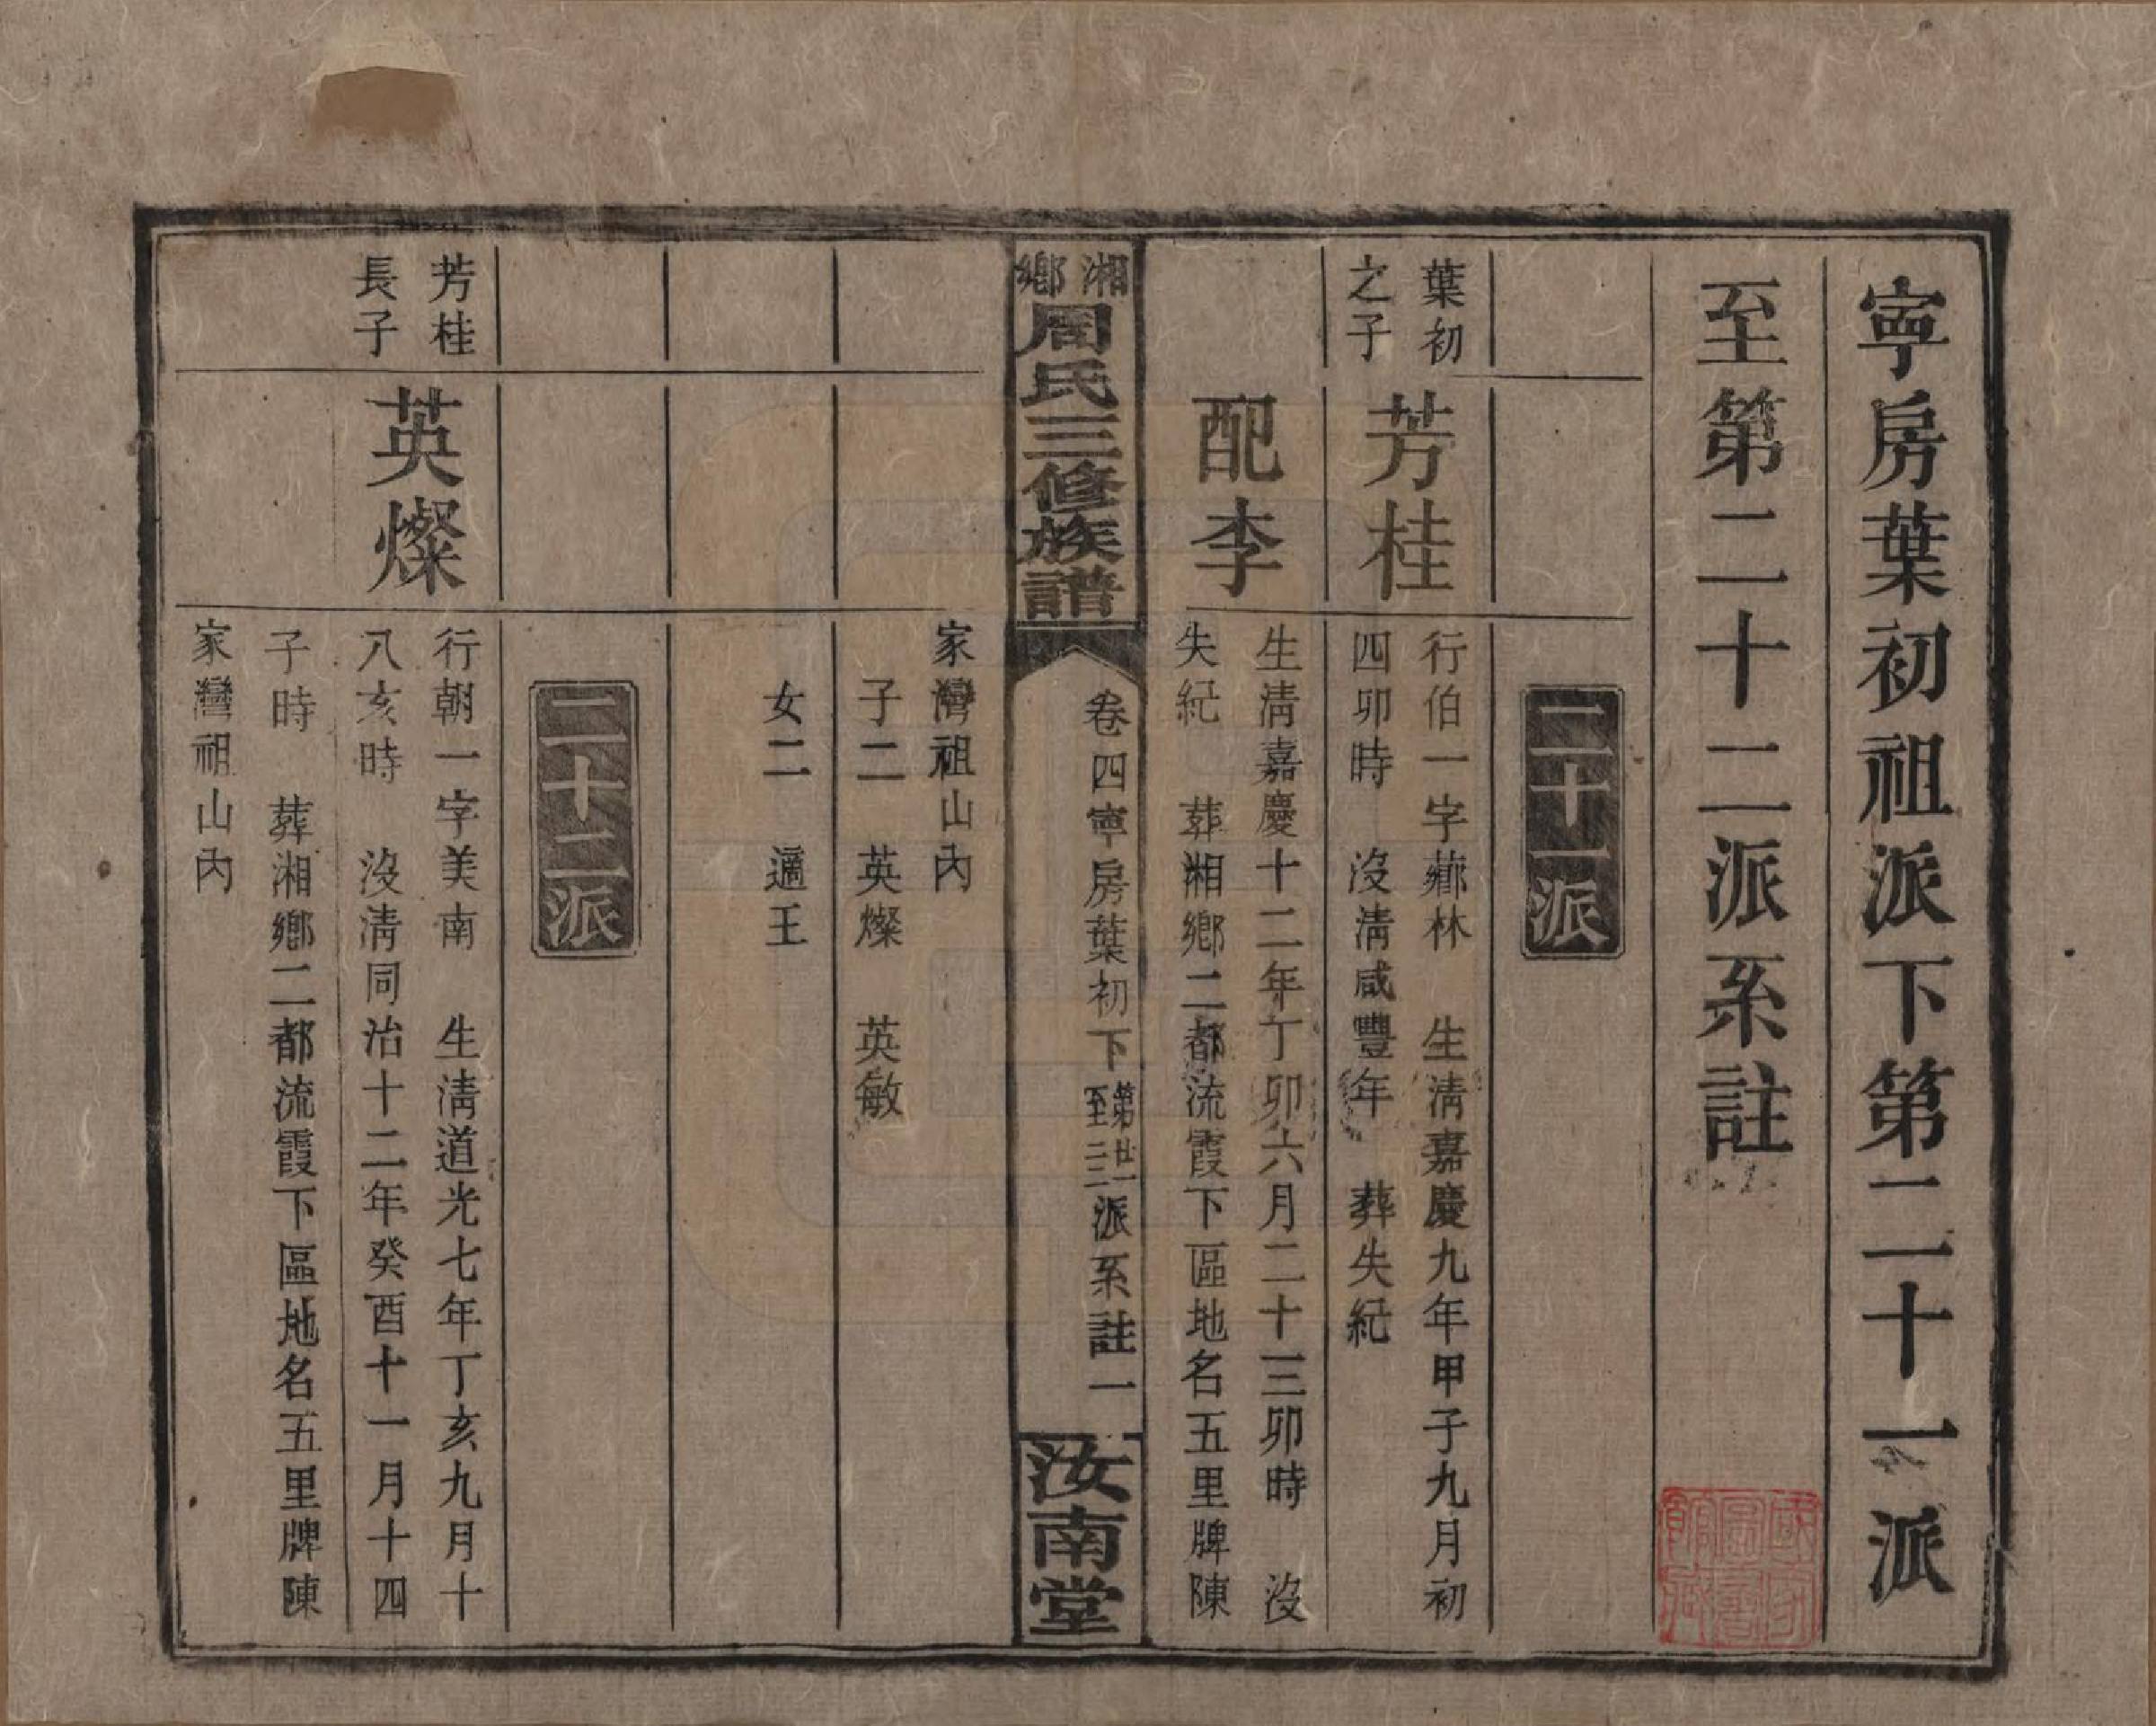 寧房葉初祖派下第二十一派
至第二十二派系註
二十一派
葉初
之子
芳桂
行伯一字薌林　生清嘉慶九年甲子九月初
四卯時　沒清咸豐年　葬失紀
配李
生清嘉慶十二年丁卯六月二十三卯時　沒
失紀　葬湘鄉二都流霞下區地名五里牌陳
湘鄉
周氏三修族譜
卷四寧房葉初下第廿一至二二派系註一
汝南堂
家灣祖山內
子二　英燦　英敏
女二　適王
二十二派
芳桂
長子
英燦
行朝一字美南　生清道光七年丁亥九月十
八亥時　沒清同治十二年癸酉十一月十四
子時　葬湘鄉二都流霞下區地名五里牌陳
家灣祖山內
國家圖書館藏